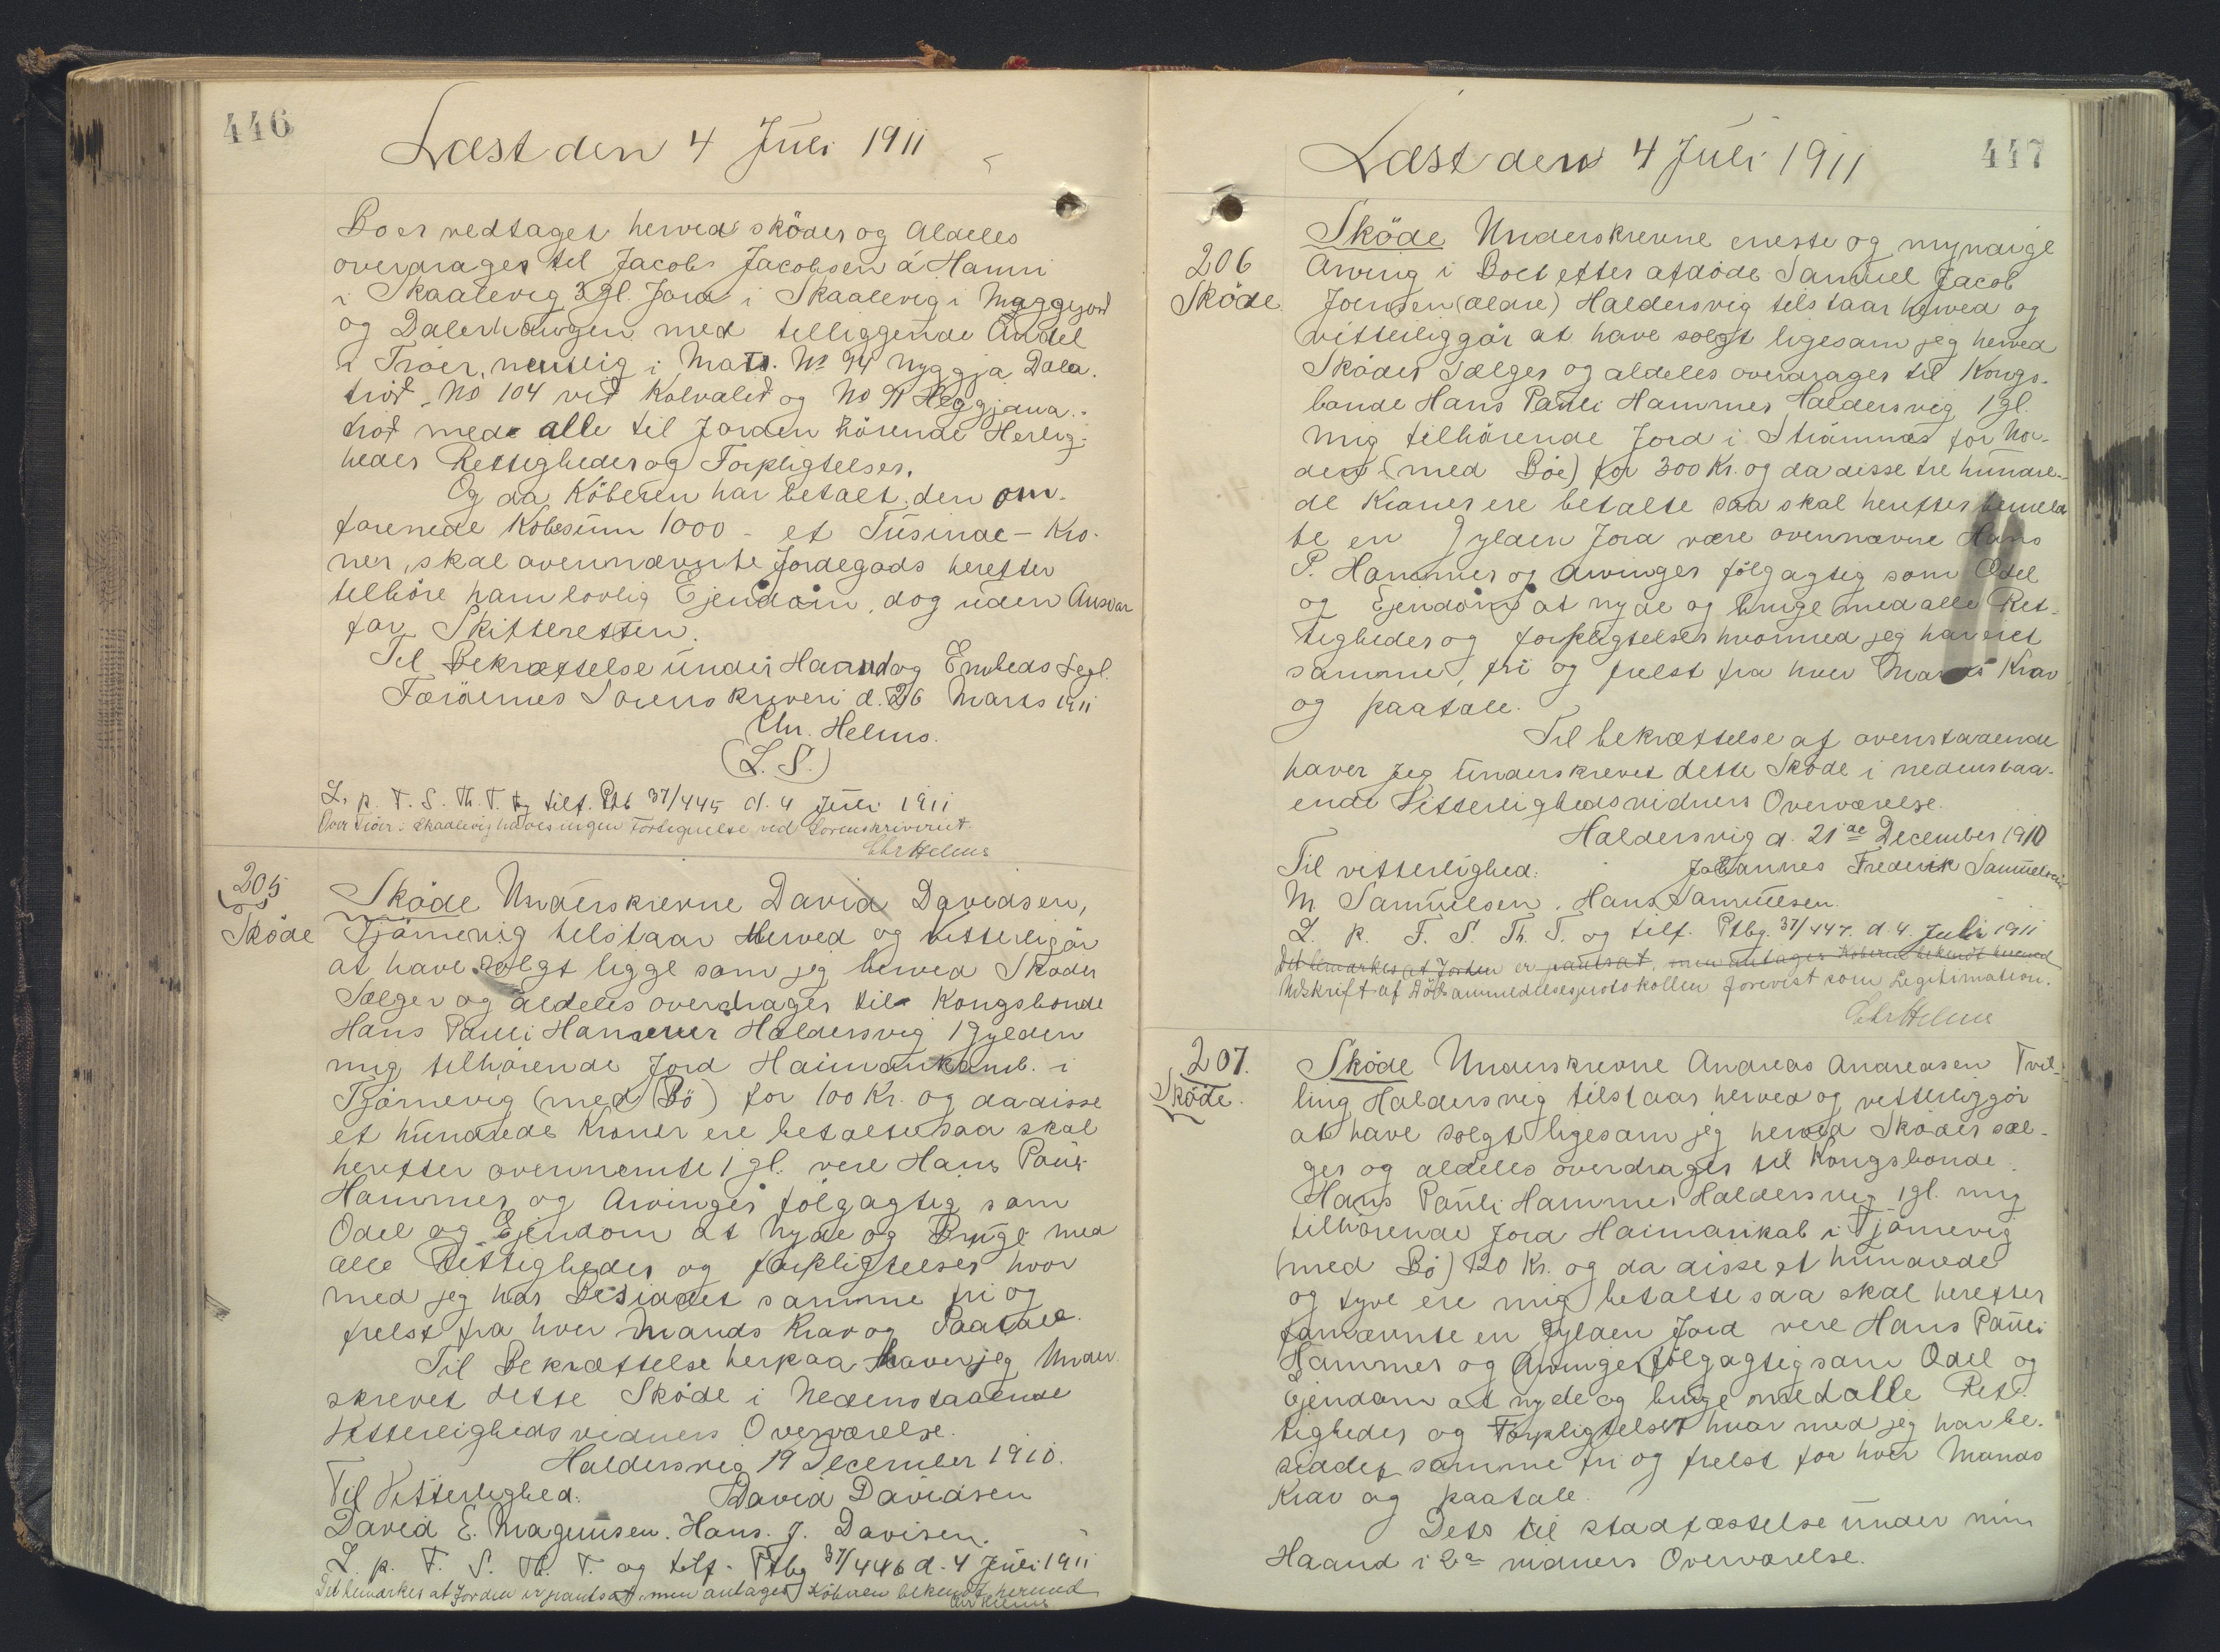 446
Læst den 4 Juli 1911
Boer vedtaget herved sköder og Aldeles
overdrager til Jacob Jacobsen á Hamri
i Skaalevig 3 gl. Jord i Skaalevig i Myggejord
og Dalerhaugen med tilliggende Andel
a Tröer, nemlig i Matr. No 94 Nyggja Dala.
tröð - No 104 við Kolvalið og No 91 Heggjana..
tröð med alle til Jorden hörende Herlig-
heder Rettigheder og Forpligtelser.
Og da Köberen har betalt den om-
forenede Köbesum 1000 - et Tusinde - Kro-
ner, skal ovennævnte Jordegods herefter
tilhöre ham lovlig Ejendom, dog uden Ansvar
for Skifteretten.
Til Bekræftelse under Haand og Embeds Segl.
Færöernes Sorenskriveri d. 26 Marts 1911
Chr. Helms.
(L. S.)
L. p. F. S. Th. T. og tilf. Ptb 37/445 d. 4 Juli 1911
Over Tröer i Skaalevig haves ingen Fortegnelse ved Sorenskriveriet.
Chr Helms
205
Sköde
Sköde Underskrevne David Davidsen,
Tjörnevig tilstaar Herved og Vitterligör
at have solgt ligge som jeg herved Sköder
Sælger og aldeles overdrager til Kongsbonde
Hans Pauli Hammer Haldersvig 1 Gylden
mig tilhörende Jord Haimankamb. i
Tjörnevig (med Bö) for 100 Kr. og da disse
et hundrede Kroner ere betalte saa skal
herefter ovennemte 1 gl. vere Hans Pauli
Hammer og Arvinger fölgagtig som
Odel og Ejendom at nyde og Bruge med
alle Rettigheder og forpligtelser hvor
med jeg har Besiddet samme fri og
frelst fra hver Mands Krav og Paatale.
Til Bekræftelse herpaa haver jeg Under
skrevet dette Sköde i Nedenstaaende
Vitterligheds vidners Overværelse.
Haldersvig 19 December 1910.
Til Vitterlighed. David Davidsen
David E. Magnusen. Hans. J. Davisen.
L p. F. S. Th. T. og tilf. Ptbg 37/446 d. 4 Juli 1911
Det bemærkes at Jorden er pantsat, men antages Köberen bekendt hermed
Chr Helms
447
Læst den 4 Juli 1911
206
Sköde
Sköde Underskrevne eneste og myndige
Arving i Boet efter afdöde Samuel Jacob
Joensen (ældre) Haldersvig tilstaar herved og
vitterliggör at have solgt ligesom jeg herved
Sköder Sælger og aldeles overdrager til Kongs-
bonde Hans Pauli Hammer Haldersvig 1 gl.
mig tilhörende Jord i Strömnæs for Nor-
den (med Böe) for 300 Kr. og da disse tre hundre-
de Kroner ere betalte saa skal herefter bemeld
te en Gylden Jord være ovennævne Hans
P. Hammer og Arvinger fölgagtig som Odel
og Ejendom at nyde og bruge med alle Ret-
tigheder og forpligtelser hvormed jeg har eiet
samme, fri og frelst fra hver Mands Krav
og paatale.
Til bekræftelse af ovenstaaende
haver jeg underskrevet dette Sköde i nedenstaa-
ende Vitterlighedsvidners Overværelse.
Haldersvig d. 21de December 1910
Til vitterlighed: Johannes Frederik Samuelsen
M Samuelsen. Hans Samuelsen.
L. p. F. S. Th. T. og tilf. Ptbg. 37/447. d. 4. Juli 1911
Det bemærkes at Jorden er pantsat, men antages Köberen bekendt hermed
Udskrift af Dödsanmeldelsesprotokollen forevist som Legitimation.
Chr Helms
207.
Sköde.
Sköde Underskrevne Andreas Andreasen Tvil-
ling Haldersvig tilstaar herved og vitterliggör
at have solgt ligesom jeg herved Sköder sæl-
ger og aldeles overdrager til Kongsbonde
Hans Pauli Hammer Haldersvig 1 gl. mig
tilhörende Jord Haimarikab i Tjörnevig
(med Bö) 120 Kr. og da disse et hundrede
og tyve ere mig betalte saa skal herefter
fornævnte en Gylden Jord vere Hans Pauli
Hammer og Arvinger fölgagtig som Odel og
Ejendom at nyde og bruge med alle Ret-
tigheder og Forpligtelser hvor med jeg har be-
siddet samme fri og frelst for hver Mands
Krav og paatale.
Dets til stadfæstelse under min
Haand i 2de vidners Overværelse.